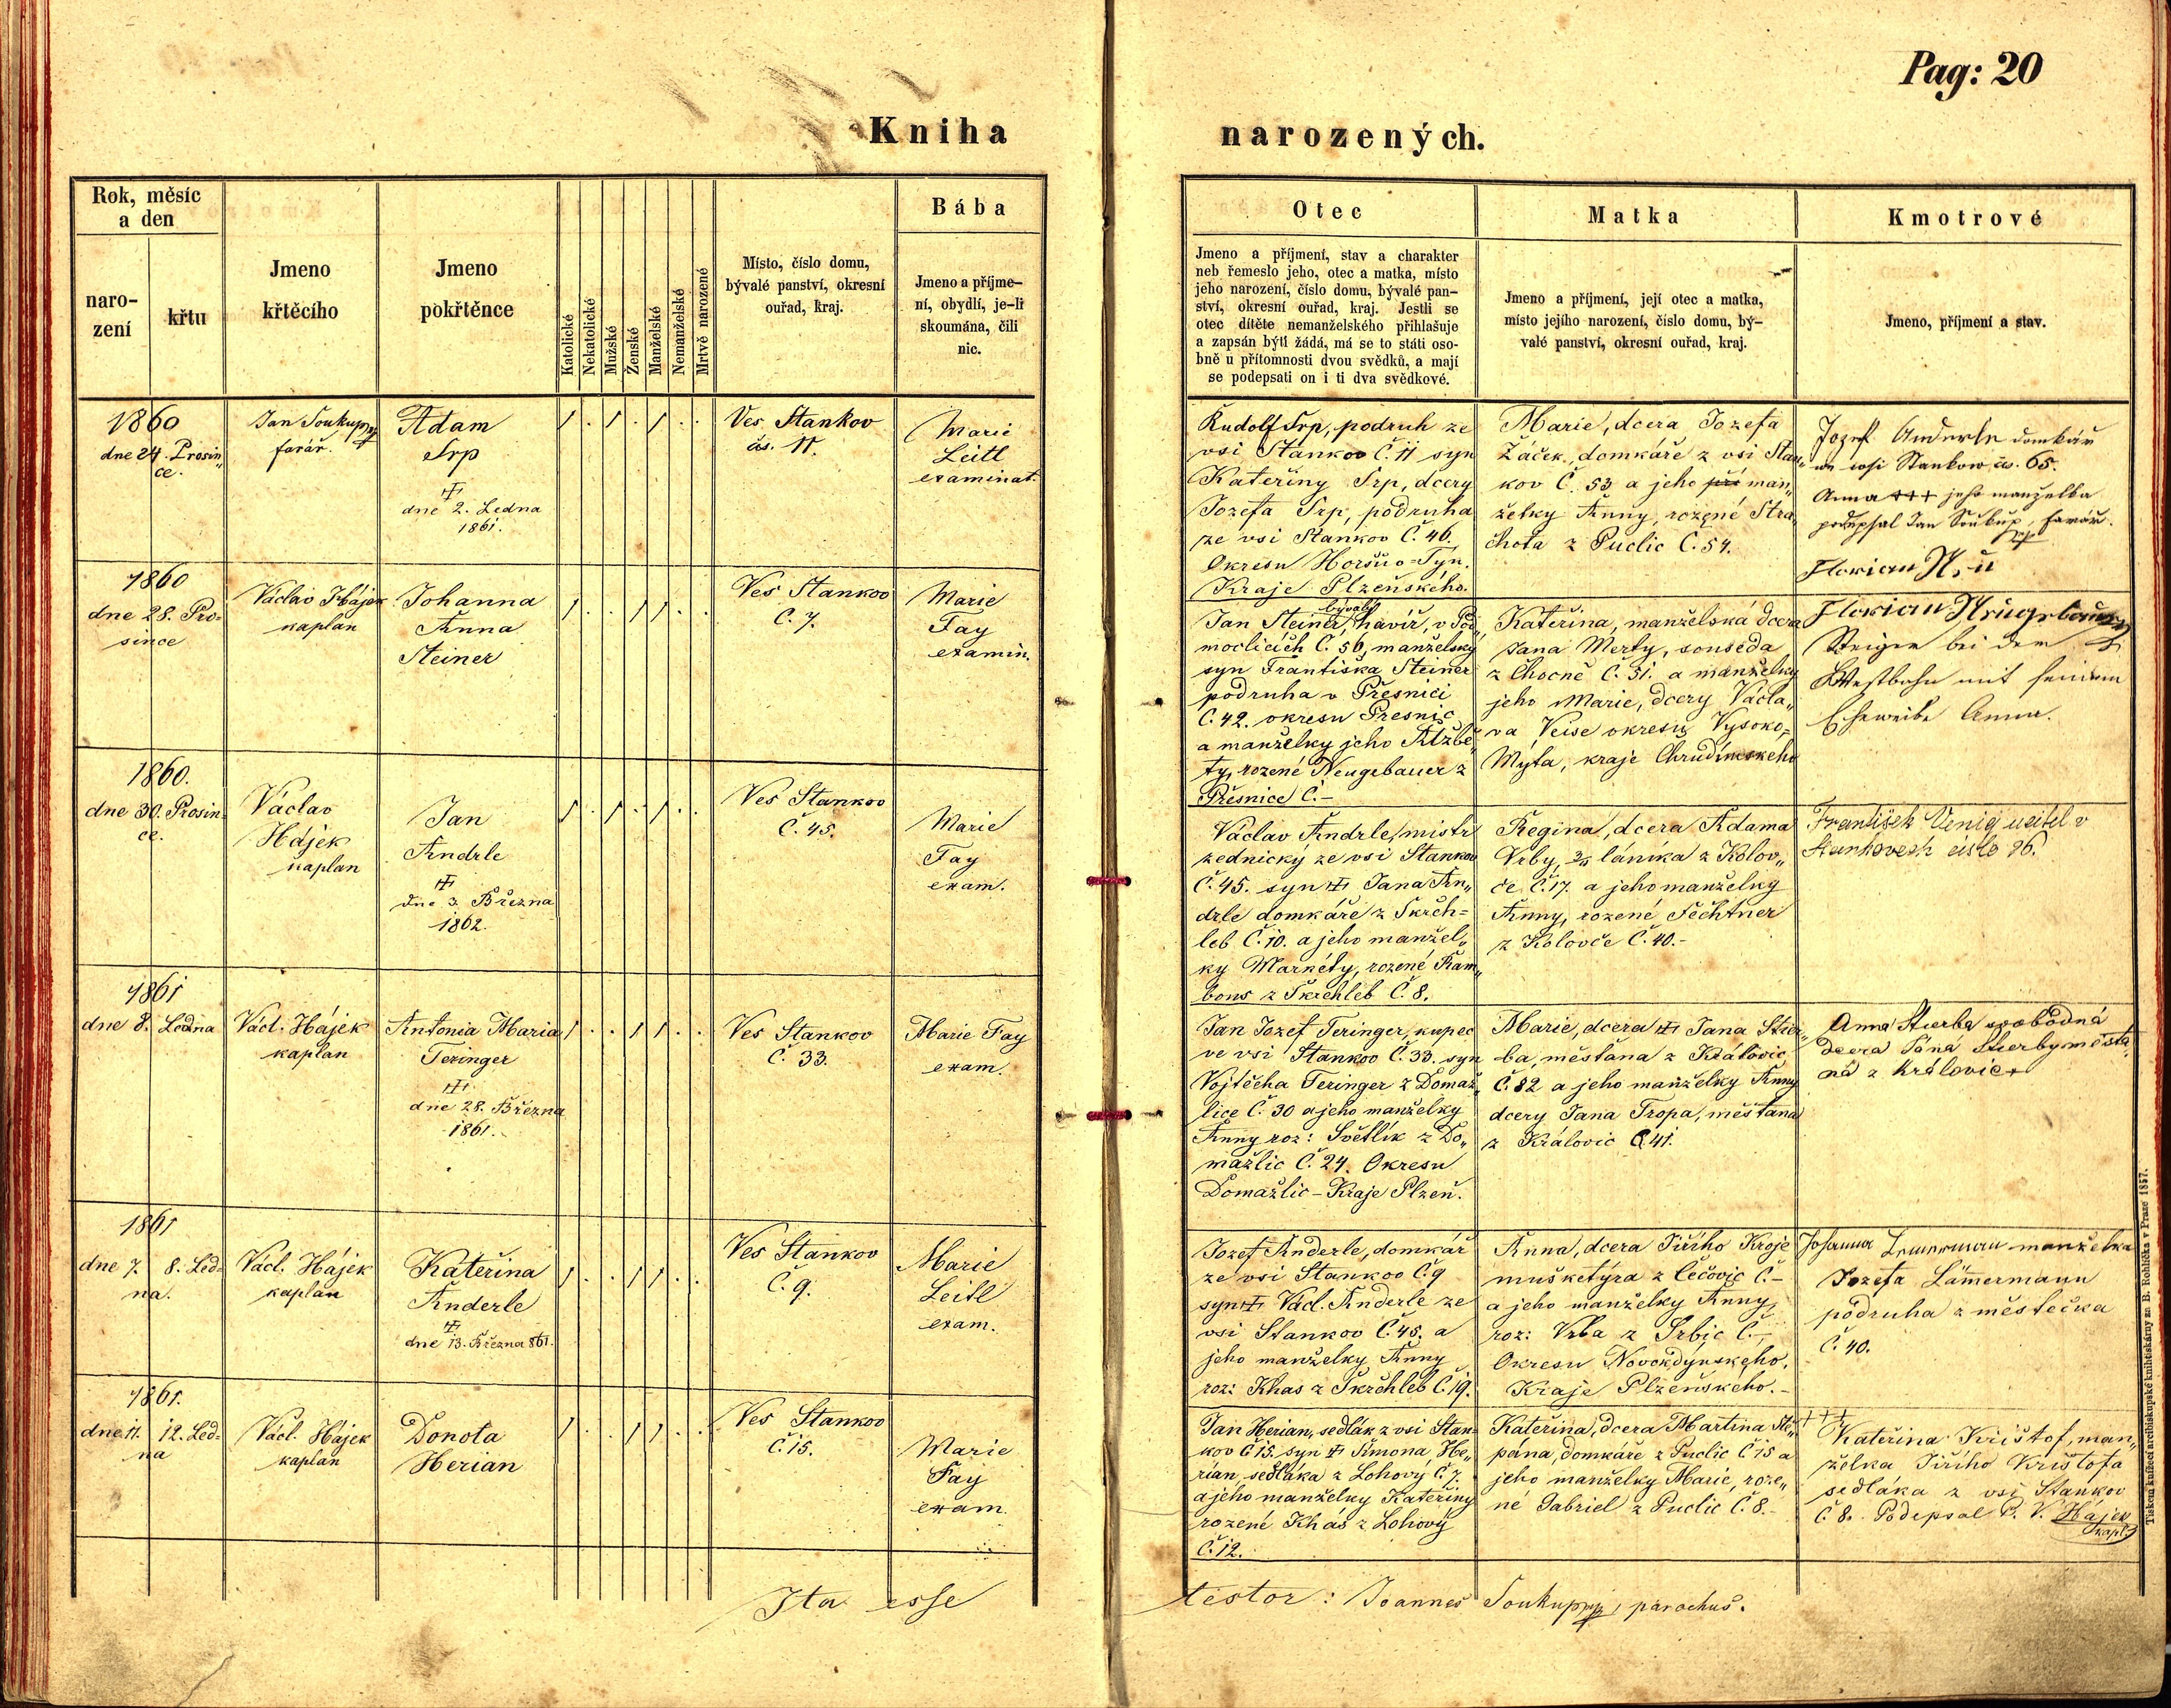 Pag: 20
Kniha narozených.
Rok, měsíc
a den
naro-
zení
křtu
Jmeno
křtěcího
Jmeno
pokřtěnce
Katolické
Nekatolické
Mužské
Ženské
Manželské
Nemanželské
Mrtvě narozené
Místo, číslo domu,
bývalé panství, okresní
ouřad, kraj.
Bába
Jmeno a příjme-
ní, obydlí, je-li
skoumána, čili
nic.
Otec
Jmeno a příjmení, stav a charakter
neb řemeslo jeho, otec a matka, místo
jeho narození, číslo domu, bývalé pan-
ství, okresní ouřad, kraj. Jestli se
otec dítěte nemanželského přihlašuje
a zapsán býti žádá, má se to státi oso-
bně u přítomnosti dvou svědků, a mají
se podepsati on i ti dva svědkové.
Matka
Jmeno a příjmení, její otec a matka,
místo jejího narození, číslo domu, bý-
valé panství, okresní ouřad, kraj.
Kmotrové
Jmeno, příjmení a stav.
1860
dne 24. Prosin„
ce.
Jan Soukup
farář.
Adam
Srp
dne 2. Ledna
1861.
Ves Stankov
čs. 11.
Marie
Leitl
examinat.
Rudolf Srp, podruh ze
vsi Stankov Č. 11 syn
Kateřiny Srp, dcery
Jozefa Srp, podruha
ze vsi Stankov Č. 46.
Okresu Horšůo-Tyn.
Kraje Plzeňského.
Marie, dcera Jozefa
Žáček, domkáře z vsi Stan„
kov Č. 53 a jeho při man„
želky Anny, rozené Stra„
chota z Puclic Č. 54.
Jozef Anderle domkář
ve wsi Stankow čs. 65.
Anna +++ jeho manželka
podepsal Jan Soukup, farář.
Florian
1860
dne 28. Pro-
since
Václav Hájek
kaplan
Johanna
Anna
Steiner
Ves Stankov
Č. 7.
Marie
Fay
examin.
bývalý
Jan Steiner, havíř, v Pod„
moclicích Č. 56, manželský
syn Františka Steiner
podruha v Přesnici
Č. 42. okresu Přesnic
a manželky jeho Alžbě„
ty, rozené Neugebauer z
Přesnice Č. -
Kateřina, manželská dcera
Jana Merty, souseda
z Chocně Č. 31. a manželky
jeho Marie, dcery Václa„
va Veise okresu Vysoko-
Mýta, kraje Chrudimského
Florian
Steiger bei der
Westbahn mit seinem
Eheweibe Anna.
1860.
dne 30. Prosin-
ce.
Václav
Hájek
kaplan
Jan
Andrle
dne 3. Března
1862.
Ves Stankov
Č. 45.
Marie
Fay
exam.
Václav Andrle, mistr
zednický ze vsi Stankov
Č. 45. syn Jana An„
drle domkáře z Skřch-
leb Č. 10. a jeho manžel„
ky Markéty, rozené Ram„
bous z Skrchleb Č. 8.
Regina, dcera Adama
Vrby, láníka z Kolov„
če Č. 17. a jeho manželky
Anny, rozené Fechtner
z Kolovče Č. 40.-
František Venig ucitel v
Stankovech čislo 96.
1861
dne 8. Ledna
Václ. Hájek
kaplan
Antonia Maria
Teringer
dne 28. Března
1861.
Ves Stankov
Č. 33.
Marie Fay
exam.
Jan Jozef Teringer, kupec
ve vsi Stankov Č. 33. syn
Vojtěcha Teringer z Domaž„
lice Č. 30 a jeho manželky
Anny roz: Světlík z Do„
mažlic Č. 24. Okresu
Domažlic - Kraje Plzeň.
Marie, dcera Jana Stier„
ba, měsťana z Královic
Č. 82 a jeho manželky Anny
dcery Jana Tropa, měsťana
z Královic Č 41.
Anna Stierba svobodná
dcera Jána Stierby města„
na z Královic
1861
dne 7. 8. Led-
na.
Václ. Hájek
kaplan
Kateřina
Anderle
dne 13. Března 861.
Ves Stankov
Č. 9.
Marie
Leitl
exam.
Jozef Anderle, domkář
ze vsi Stankov Č. 9
syn Václ. Anderle ze
vsi Stankov Č. 45. a
jeho manželky Anny
roz: Khas z Skrchleb Č. 19.
Anna, dcera Jiřího Kroje
mušketýra z Čečovic Č. -
a jeho manželky Anny,
roz: Vrba z Srbic Č. -,
Okresu Novokdýnského.
Kraje Plzeňského. -
Johanna manželka
Jozefa Lämermann
podruha z městečka
Č. 40.
1861.
dne 11. 12. Led-
na
Václ. Hájek
kaplan
Donota
Herian
Ves Stankov
Č. 15.
Marie
Fay
exam.
Jan Herian, sedlák z vsi Stan-
kov Č 15. syn Šimona He„
rian, sedláka z Lohový Č. 7.
a jeho manželky Kateřiny
rozené Khás z Lohový
Č. 12.
Kateřina, dcera Martina Stě„
pána, domkáře z Puclic Č 15 a
jeho manželky Marie, roze„
né Gabriel z Puclic Č. 8.-
+++
Kateřina Krištof, man„
želka Jiřího Krištofa
sedláka z vsi Stankov
Č. 8. Podepsal P. V. Hájek
kapl.
Ita esse testor: Joannes Soukup, parochus.
Tiskem knížecí arcibiskupské knihtiskárny za B. Rohlíčka v Praze 1857.